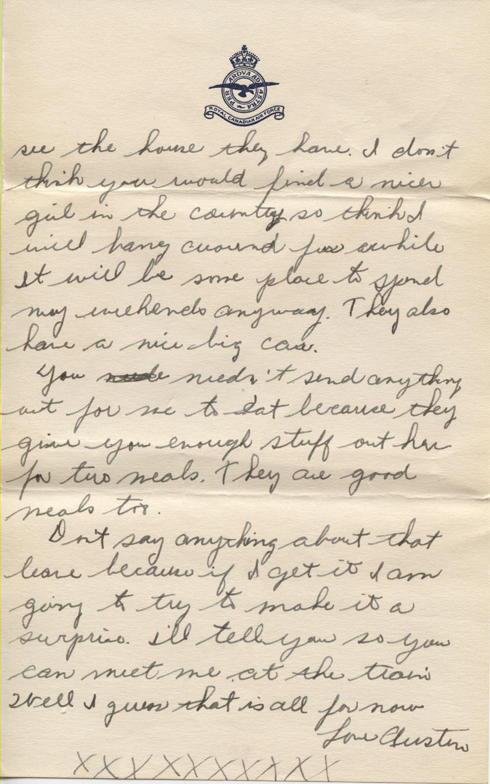 PER ARDVA AD ASTRA
ROYAL CANADIAN AIR FORCE
see the house they have. I don't
think you would find a nicer
girl in the country so think I
will hang around for awhile
It will be some place to spend
my weekends anyway. They also
have a nice big car.
You needn't send anything
out for me to eat because they
give you enough stuff out here
for two meals. They are good
meals too.
Don't say anything about that
leave because if I get it I am
going to try to make it a
surprise. I'll tell you so you
can meet me at the train
Well I guess that is all for now
Love Austin
XXXXXXXXXX